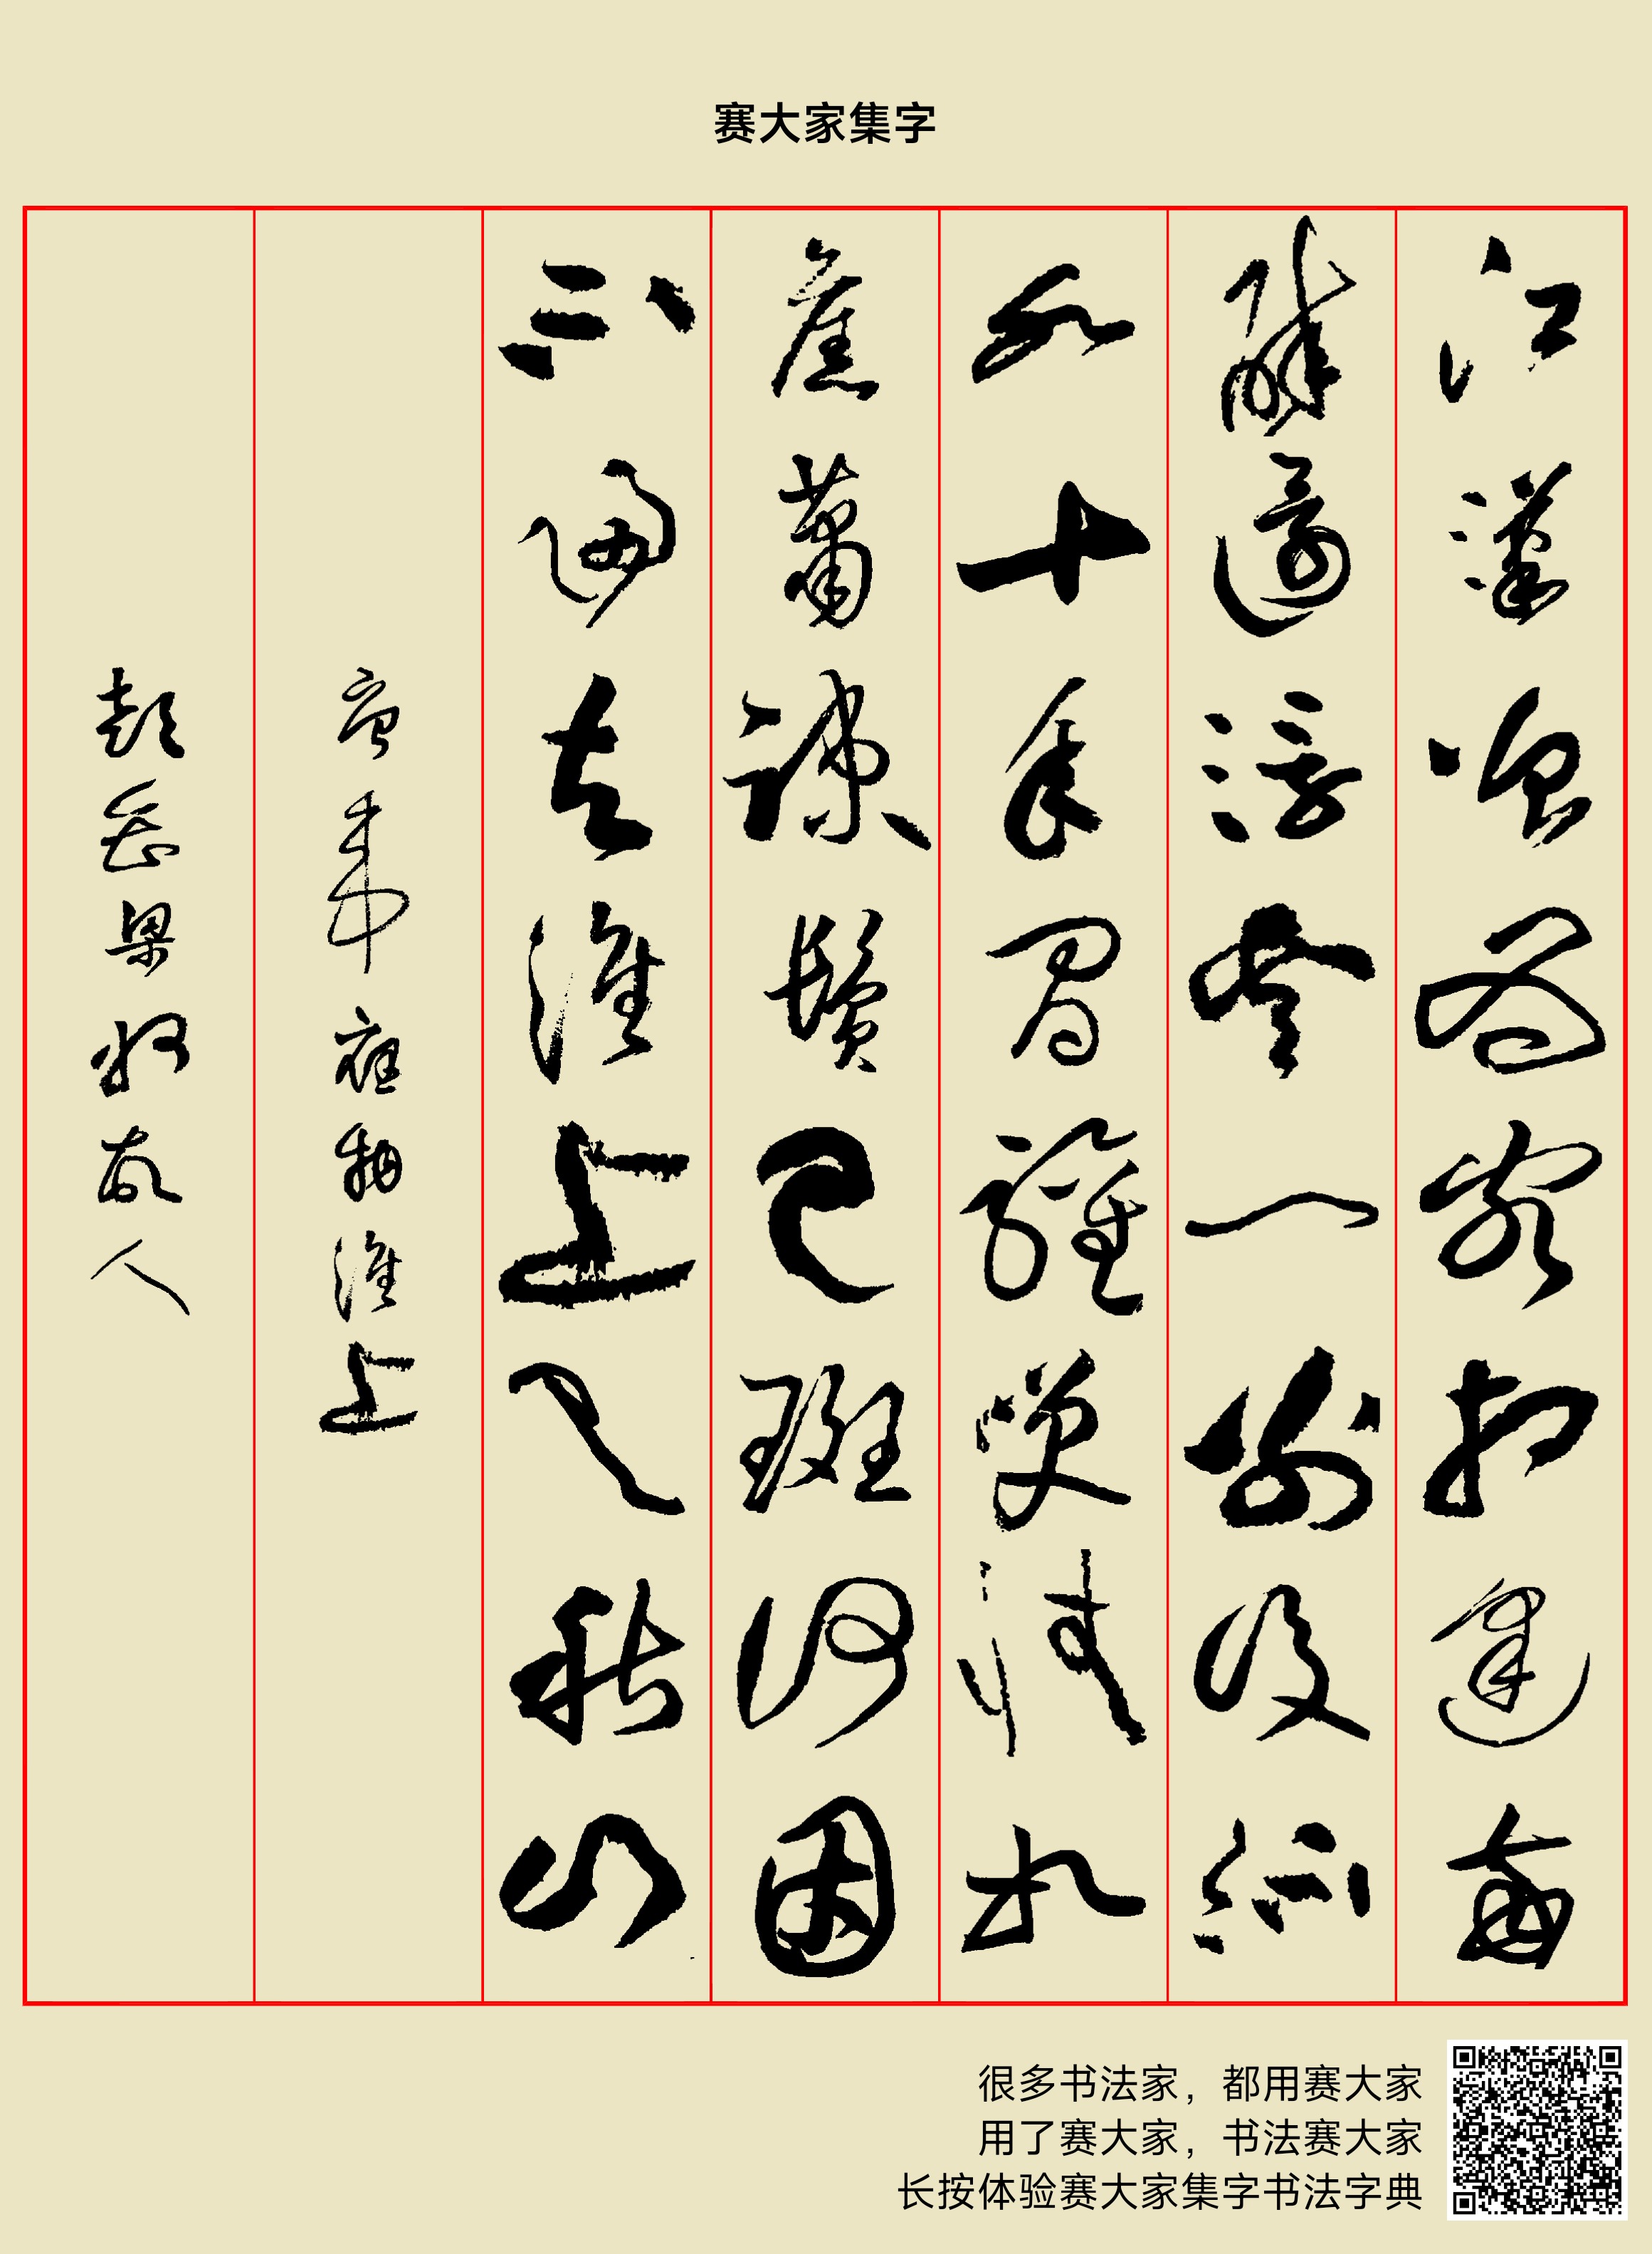 赛大家集字
江漢曾為客相逢每
醉還浮雲一别後流
水十年間歡笑情如
舊蕭疎鬢已斑何因
不歸去淮上有秋山
唐韋應物淮上
喜會梁州故人
很多书法家，都用赛大家
用了赛大家，书法赛大家
长按体验赛大家集字书法字典